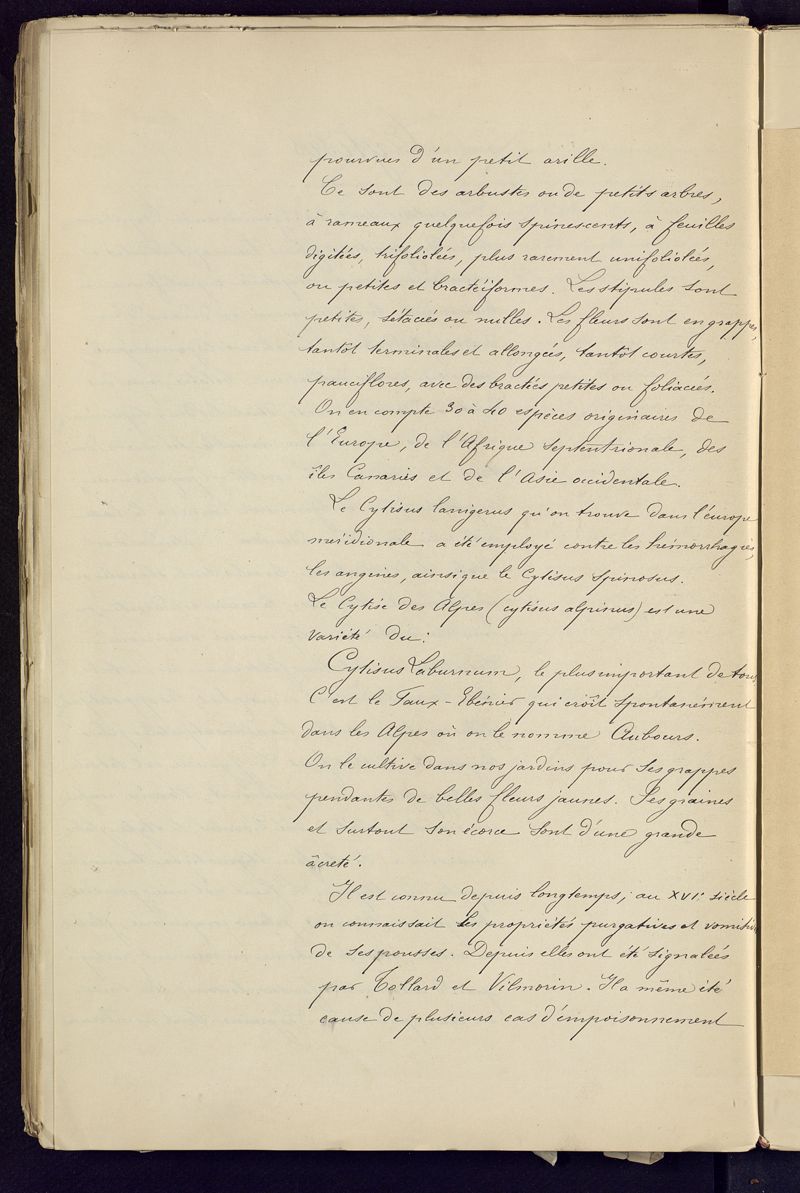 pourvues d'un petit arille.
Ce sont des arbustes ou de petits arbres,
à rameaux quelquefois spinescents, à feuilles
digitées, trifoliolées, plus rarement unifoliolées,
ou petites et bractéiformes. Les stipules sont
petites, sétacées ou nulles. Les fleurs sont en grappes,
tantôt terminales et allongées, tantôt courtes,
pauciflores, avec des bractées petites ou foliacées.
On en compte 30 à 40 espèces originaires de
l'Europe, de l'Afrique septentrionale, des
îles Canaries et de l'Asie occidentale.
Le Cytisus lanigerus qu'on trouve dans l'europe
méridionale a été employé contre les hémorrhagies,
les angines, ainsi que le Cytisus spinosus.
Le Cytise des Alpes (cytisus alpinus) est une
variété du :
Cytisus Laburnum, le plus important de tous.
C'est le Faux-Ebénier qui croît spontanément
dans les Alpes où on le nomme Aubours.
On le cultive dans nos jardins pour ses grappes
pendantes de belles fleurs jaunes. Ses graines
et surtout son écorce sont d'une grande
âcreté.
Il est connu depuis longtemps; au XVI.e siècle
on connaissait les propriétés purgatives et vomitives
de ses pousses. Depuis elles ont été signalées
par Tollard et Vilmorin. Il a même été
cause de plusieurs cas d'empoisonnement